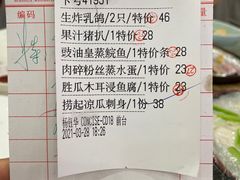 编码
卡号41931
生炸乳鸽/2只/特价 46
果汁猪扒/1特价 28
豉油皇蒸鲩鱼/1特价条 28
肉碎粉丝蒸水蛋/1特价 23
胜瓜木耳浸鱼腐/1特价 23
捞起凉瓜刺身/1份 38
CONCISE-CD18 前台
2021-03-28 18:26